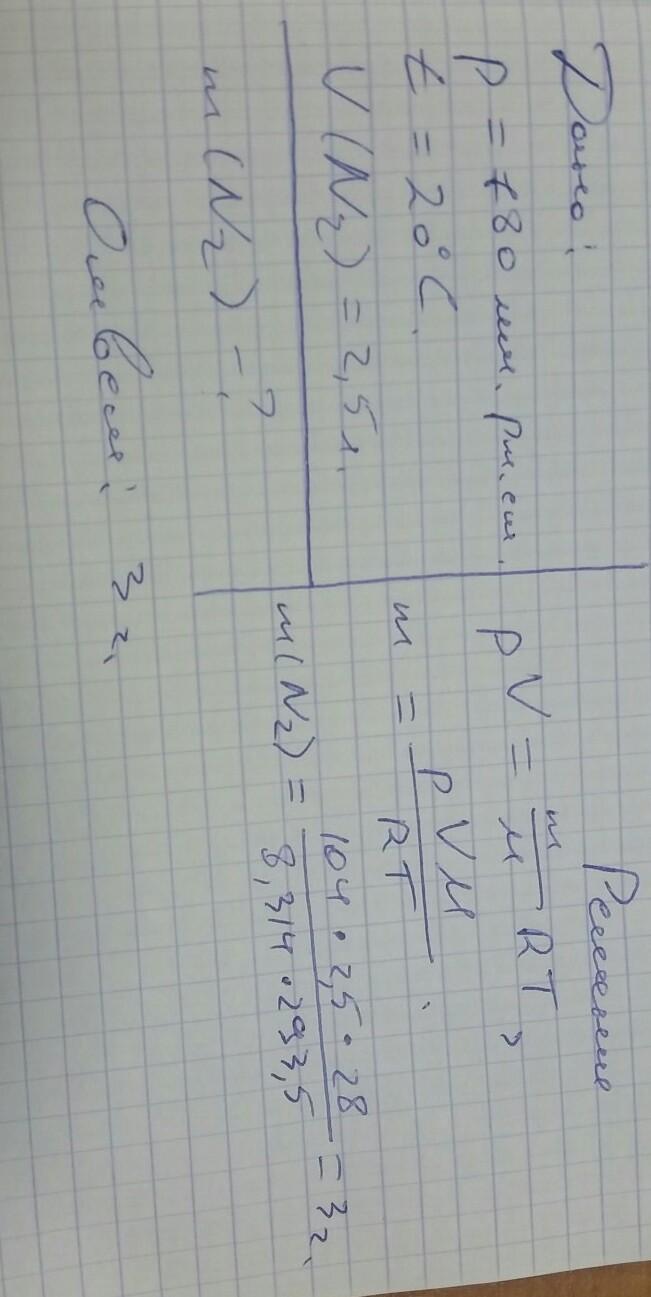 Дано:
p = 780 мм. рт. ст.
t = 20°C.
V(N₂) = 2,5 л.
m(N₂) - ?
Решение
pV = m/μ RT,
m = pVμ/RT.
m(N₂) = 104 · 2,5 · 28 / 8,314 · 293,5 = 3 г.
Ответ: 3 г.